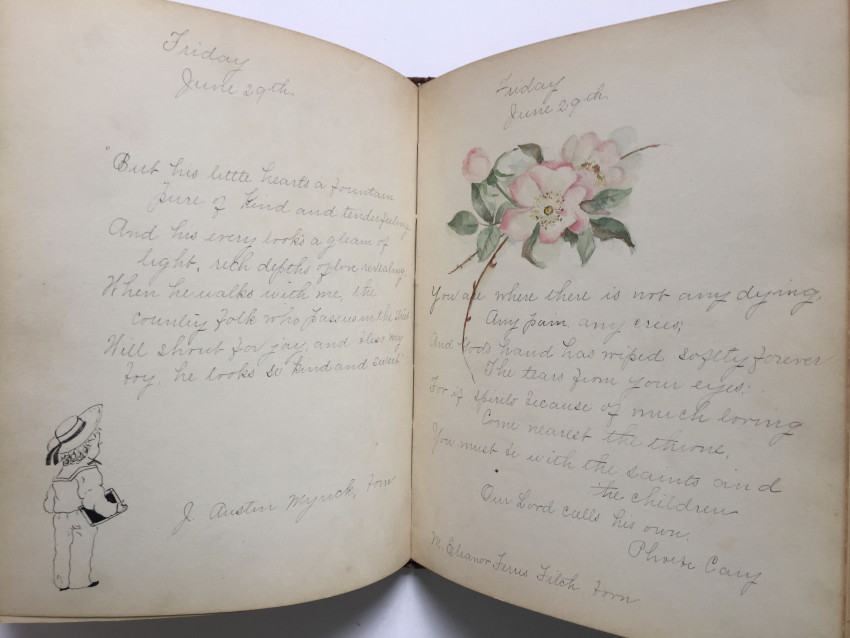 Friday
June 29th.
"But his little hearts a fountain
pure of kind and tender feeling
And his every look's a gleam of
light, rich depths of love revealing.
When he walks with me, the
country folk who pass us in the
Will shout for joy, and bless my
boy, he looks so kind and sweet"
J. Austin
Friday
June 29th.
You are where there is not any dying,
Any pain, any cries;
And God's hand has wiped softly forever
The tears from your eyes:
For if spirits because of much loving
Come nearest the throne,
You must be with the saints and
the children
Our Lord calls his own.
Phoebe Cary
M. Eleanor Ferris